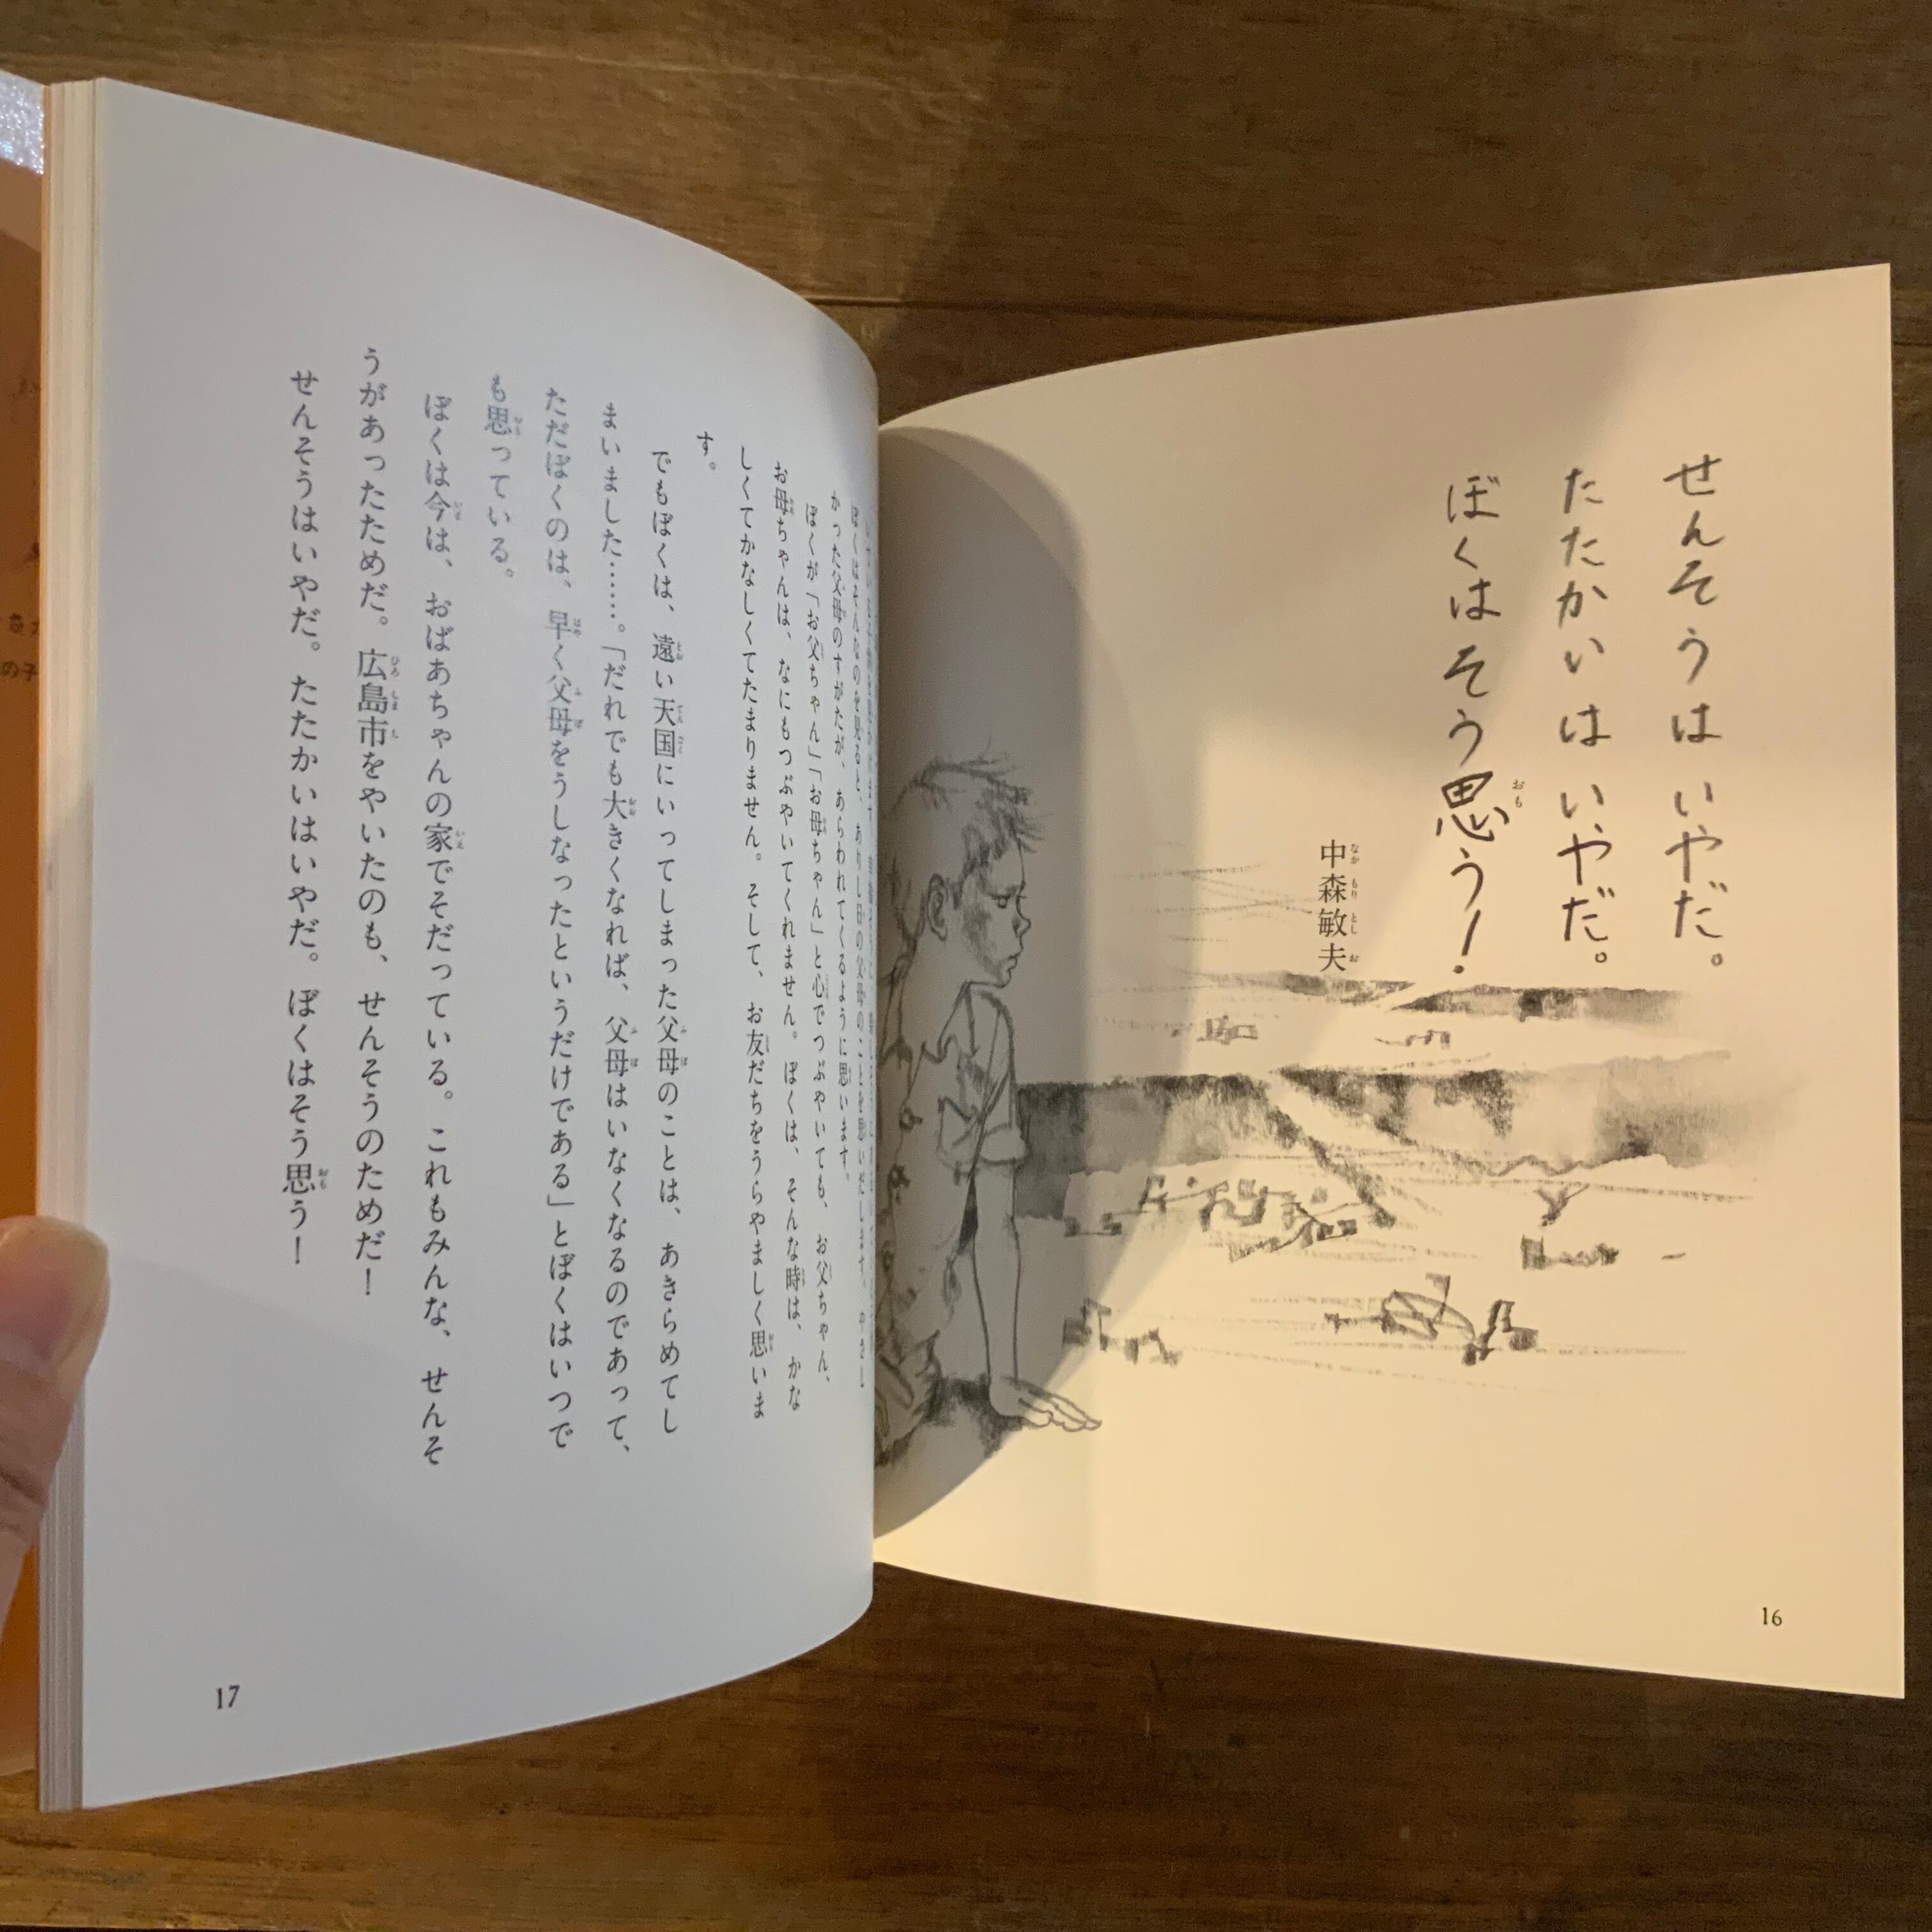 せんそうはいやだ。
たたかいはいやだ。
ぼくはそう思う!
中森敏夫
16
ぼくはそんなのを見ると、ありし日の父母のことを思いだします。やさし
かった父母のすがたが、あらわれてくるように思います。
ぼくが「お父ちゃん」「お母ちゃん」と心でつぶやいても、お父ちゃん、
お母ちゃんは、なにもつぶやいてくれません。ぼくは、そんな時は、かな
しくてかなしくてたまりません。そして、お友だちをうらやましく思いま
す。
でもぼくは、遠い天国にいってしまった父母のことは、あきらめてし
まいました……。「だれでも大きくなれば、父母はいなくなるのであって、
ただぼくのは、早く父母をうしなったというだけである」とぼくはいつで
も思っている。
ぼくは今は、おばあちゃんの家でそだっている。これもみんな、せんそ
うがあったためだ。広島市をやいたのも、せんそうのためだ!
せんそうはいやだ。たたかいはいやだ。ぼくはそう思う!
17